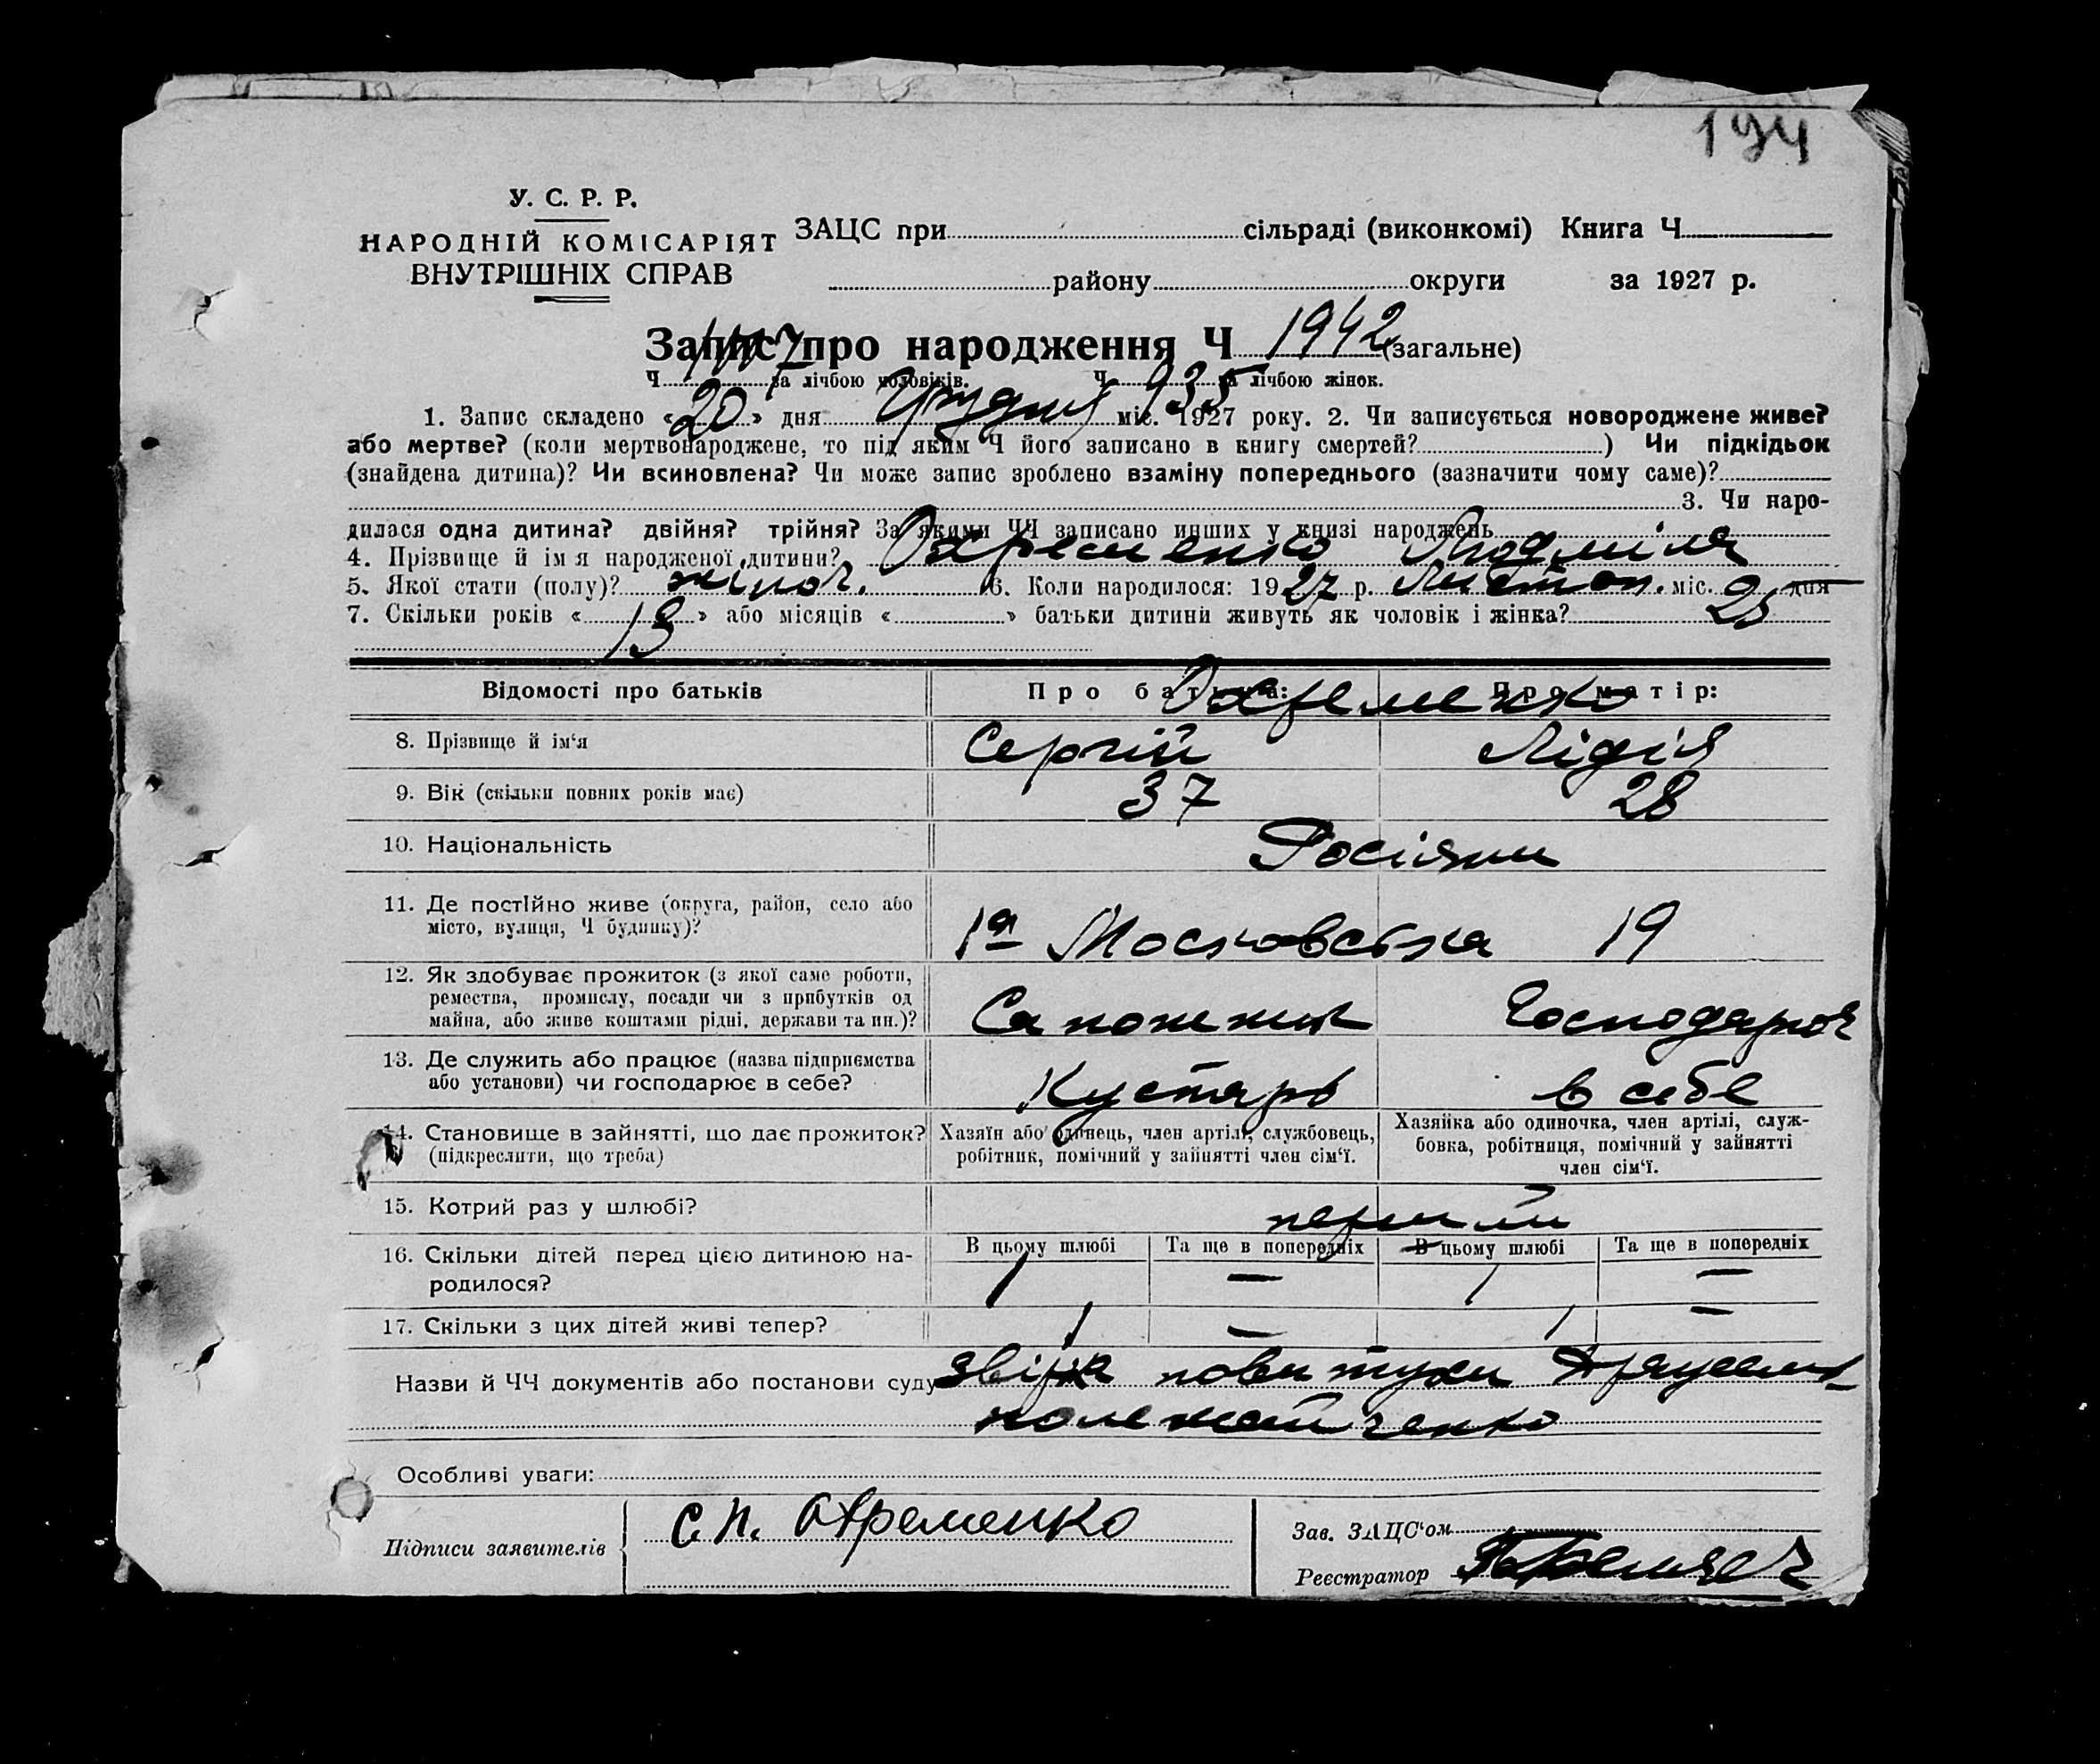 194
У. С. Р. Р.
НАРОДНІЙ КОМІСАРІЯТ
ВНУТРІШНІХ СПРАВ
ЗАЦС при сільраді (виконкомі) Книга Ч
району округи за 1927 р.
Запис про народження Ч 1942 (загальне)
Ч за лічбою чоловіків. Ч 935 за лічбою жінок.
1. Запис складено «20» дня Грудня міс. 1927 року. 2. Чи записується новороджене живе?
або мертве? (коли мертвонароджене, то під яким Ч його записано в книгу смертей? ) Чи підкідьок
(знайдена дитина)? Чи всиновлена? Чи може запис зроблено взаміну попереднього (зазначити чому саме)?
3. Чи наро-
дилася одна дитина? двійня? трійня? За якими ЧЧ записано инших у книзі народжень
4. Прізвище й ім я народженої дитини? Охременко Людміла
5. Якої стати (полу)? жіноч. 6. Коли народилося: 1927 р. Листоп. міс. 25 дня
7. Скільки років «13» або місяців « » батьки дитини живуть як чоловік і жінка?
Відомості про батьків Про батька: Про матір:
Охременко
8. Прізвище й ім‘я Сергій Лідія
9. Вік (скільки повних років має) 37 28
10. Національність Росіяни
11. Де постійно живе (округа, район, село або
місто, вулиця, Ч будинку)? 1а Московська 19
12. Як здобуває прожиток (з якої саме роботи,
ремества, промислу, посади чи з прибутків од
майна, або живе коштами рідні, держави та ин.)? Сапожник Господарюч
13. Де служить або працює (назва підприємства
або установи) чи господарює в себе? Кустарь в себе
14. Становище в зайнятті, що дає прожиток?
(підкреслити, що треба)
Хазяїн або одинець, член артілі, службовець,
робітник, помічний у зайнятті член сім‘ї.
Хазяйка або одиночка, член артілі, служ-
бовка, робітниця, помічний у зайнятті
член сім‘ї.
15. Котрий раз у шлюбі? перший
16. Скільки дітей перед цією дитиною на-
родилося?
В цьому шлюбі Та ще в попередніх В цьому шлюбі Та ще в попередніх
1 — 1 —
17. Скільки з цих дітей живі тепер? 1 — 1 —
Назви й ЧЧ документів або постанови суду повитухи
Особливі уваги:
Підписи заявителів С. П. Охременко
Зав. ЗАЦС‘ом
Реєстратор